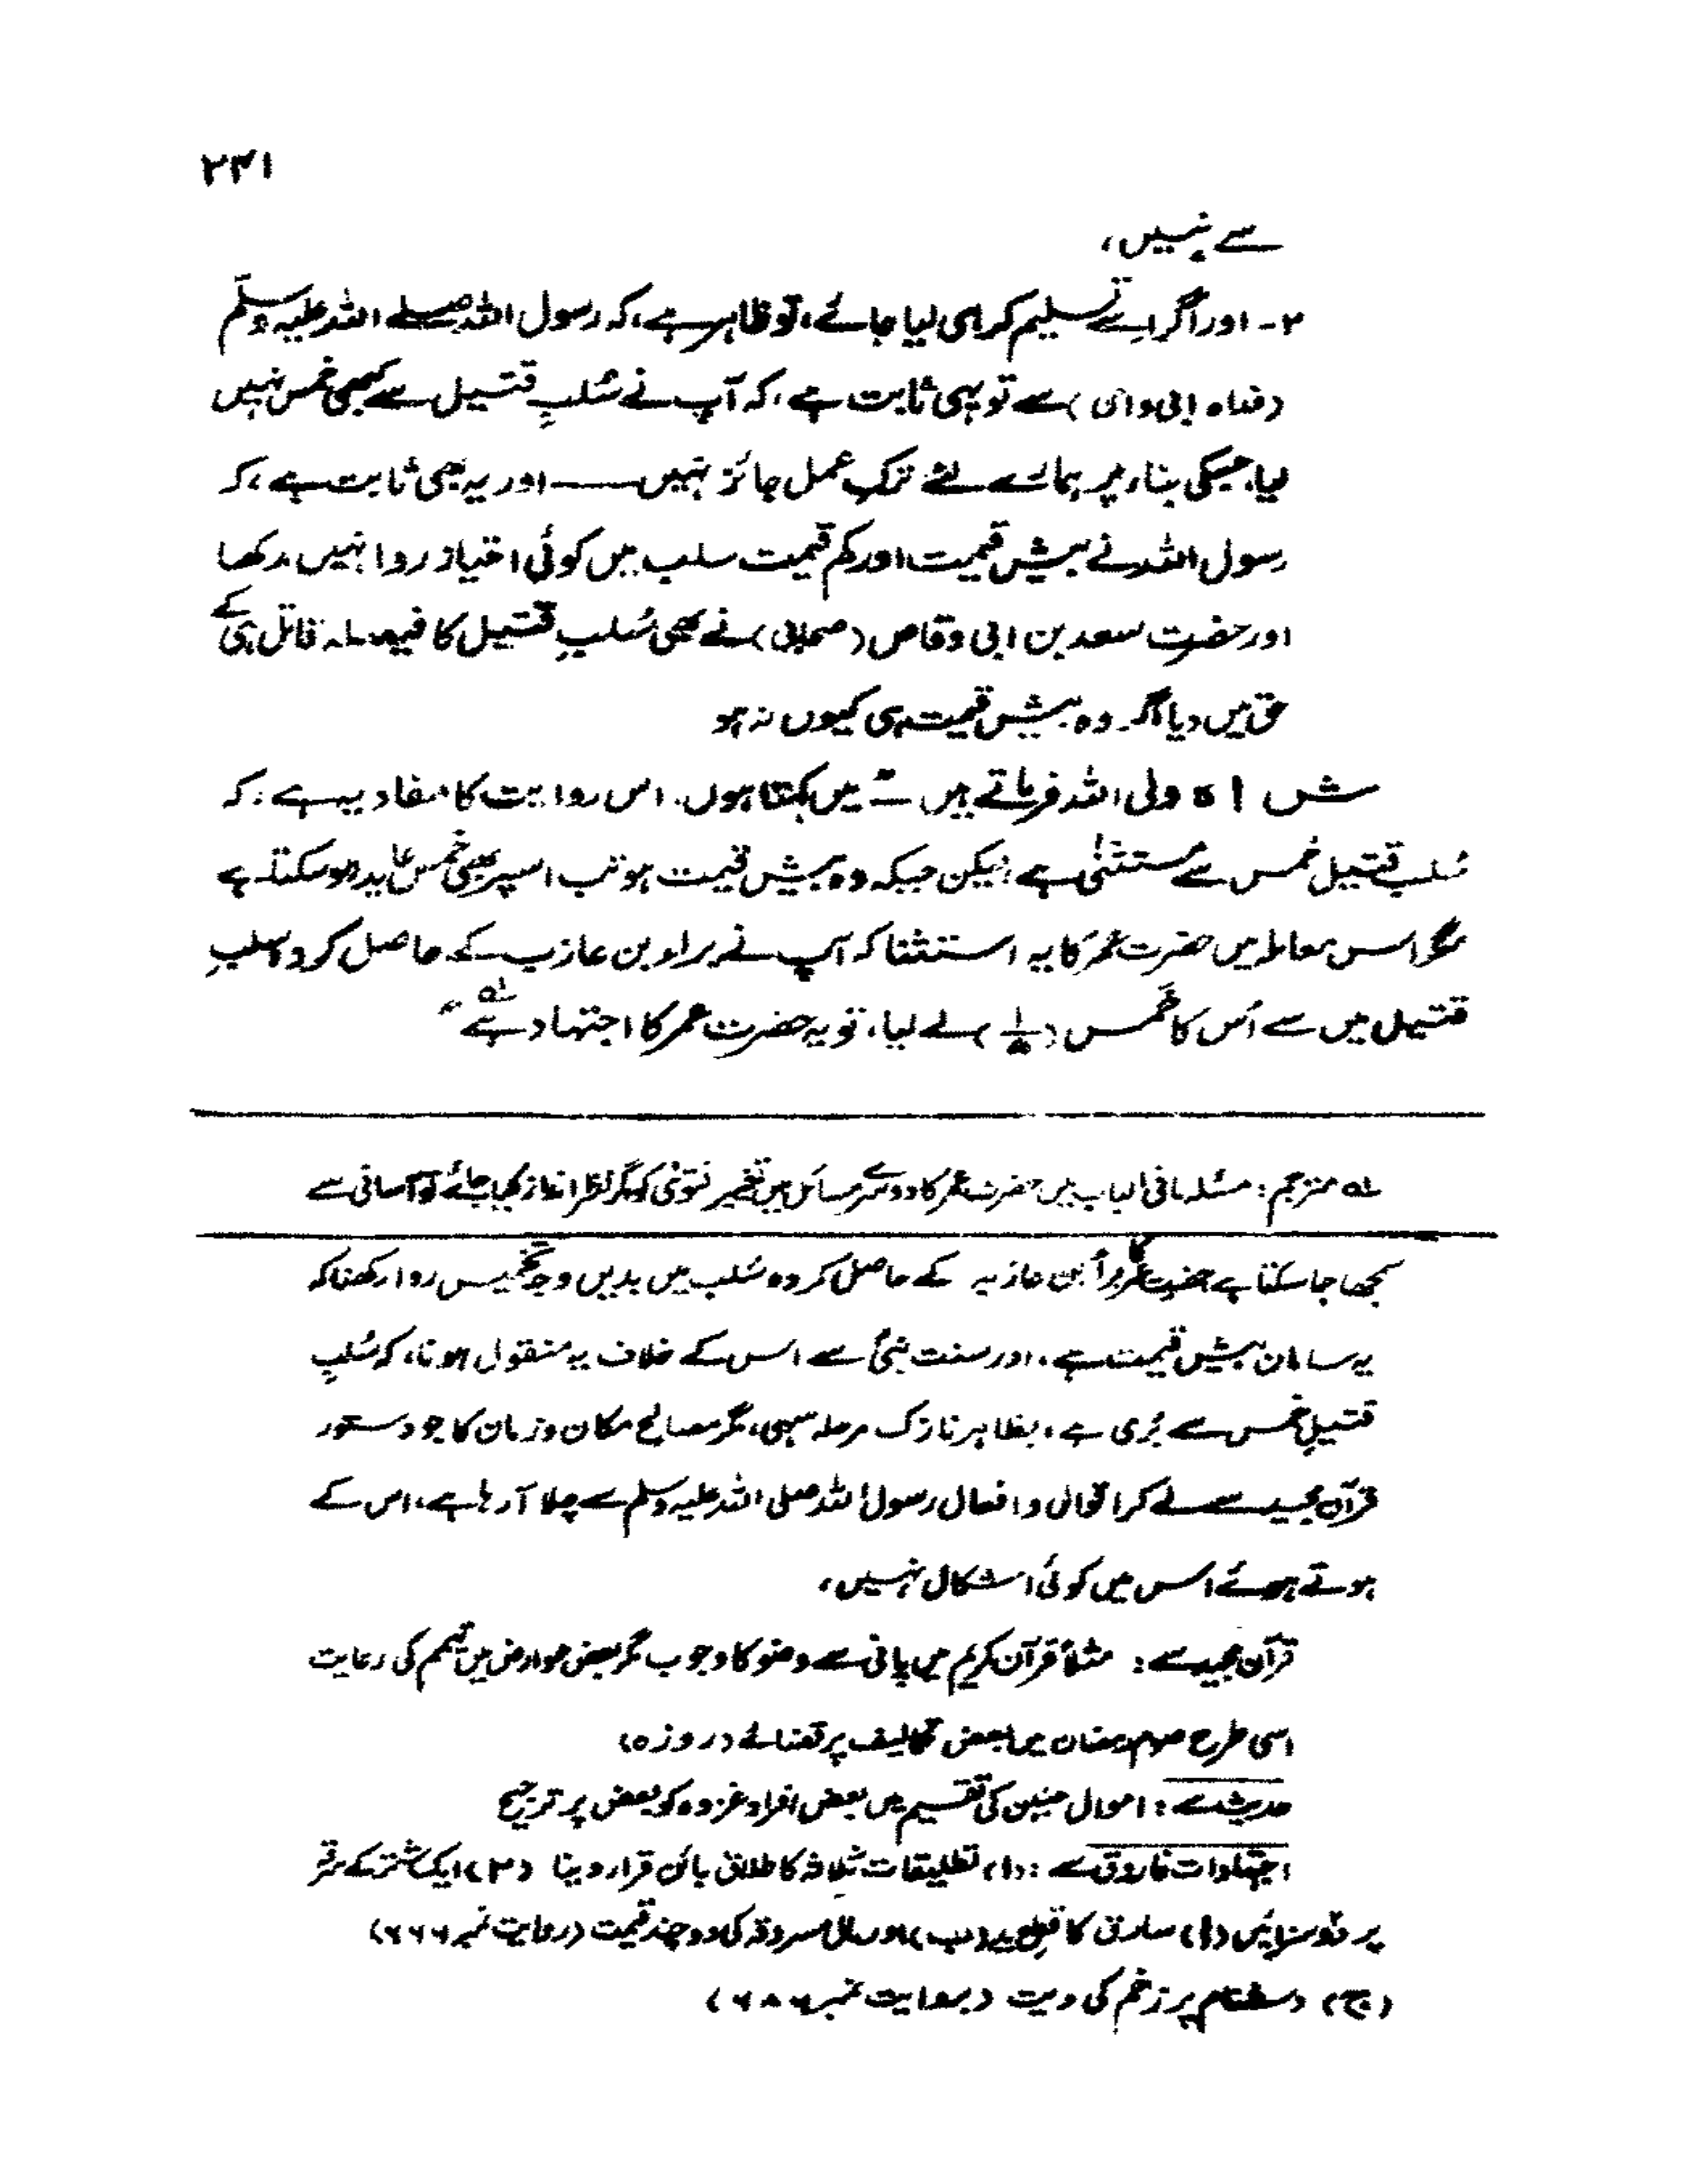 ۲۳۱
سے نہیں،
۲- اور اگر اسے تسلیم کر ہی لیا جائے، تو ظاہر ہے، کہ رسول اللہ صلے اللہ علیہ وسلّم
(فداہ ابی و امی) سے تو یہی ثابت ہے، کہ آپ نے سُلبِ قتیل سے کبھی خمس نہیں
لیا، جسکی بناء پر ہمارے لئے ترکِ عمل جائز نہیں —— اور یہ بھی ثابت ہے، کہ
رسول اللہ نے بیش قیمت اور کم قیمت سلب میں کوئی امتیاز روا نہیں رکھا
اور حضرت سعد بن ابی وقاص (صحابی) نے بھی سُلبِ قتیل کا فیصلہ قاتل ہی کے
حق میں دیا اگر وہ بیش قیمت ہی کیوں نہ ہو
ش اہ ولی اللہ فرماتے ہیں :- ” میں کہتا ہوں. اس روایت کا مفاد یہ ہے : کہ
سُلبِ قتیل خمس سے مُستثنٰی ہے؛ لیکن جبکہ وہ بیش قیمت ہو تب اسپر بھی خُمس عاید ہو سکتا ہے
مگر اس معاملہ میں حضرت عمر کا یہ استثنا کہ آپ نے براء بن عازب کے حاصل کردہ سلبِ
قتیل میں سے اُس کا خُمس (۱/۵) لے لیا، تو یہ حضرت عمر کا اجتہاد ہے لہ “
لہ مترجم : مسئلہ مافی الباب میں حضرت عمر کا دوسرے مسائل میں تغیر فتوٰی کو گر نظر انداز کیا جائے تو آسانی سے
سمجھا جا سکتا ہے حضرت عمر کا برأ بن عازب کے حاصل کردہ سُلب میں بدیں وجہ تخمیس روا رکھنا کہ
یہ سامان بیش قیمت ہے، اور سنت نبیؐ سے اس کے خلاف یہ منقول ہونا، کہ سُلبِ
قتیل خمس سے بَری ہے، بظاہر نازک مرحلہ سہی، مگر مصالح مکان و زمان کا جو دستور
قرآن مجید سے لے کر اقوال و افعال رسول اللہ صلی اللہ علیہ وسلم سے چلا آ رہا ہے، اس کے
ہوتے ہوئے اس میں کوئی اشکال نہیں،
قرآن مجید سے : مثلاً قرآن کریم میں پانی سے وضو کا وجوب مگر بعض عوارض میں تیمم کی رعایت
اسی طرح صوم رمضان میں بعض تکالیف پر قضائے (روزہ)
حدیث سے : اموال حنین کی تقسیم میں بعض افراد غزوہ کو بعض پر ترجیح
اجتہادات فاروق سے : (۱) تطلیقات ثلاثہ کا طلاق بائن قرار دینا (۲) ایک شتر کے سرقہ
پر دو سزائیں (ا) سارق کا قطع ید (ب) اور مال مسروقہ کی دو چند قیمت (روایت نمبر ۶۶۶)
(ج) دشنام پر زخم کی دیت (بروایت نمبر ۶۸۶)